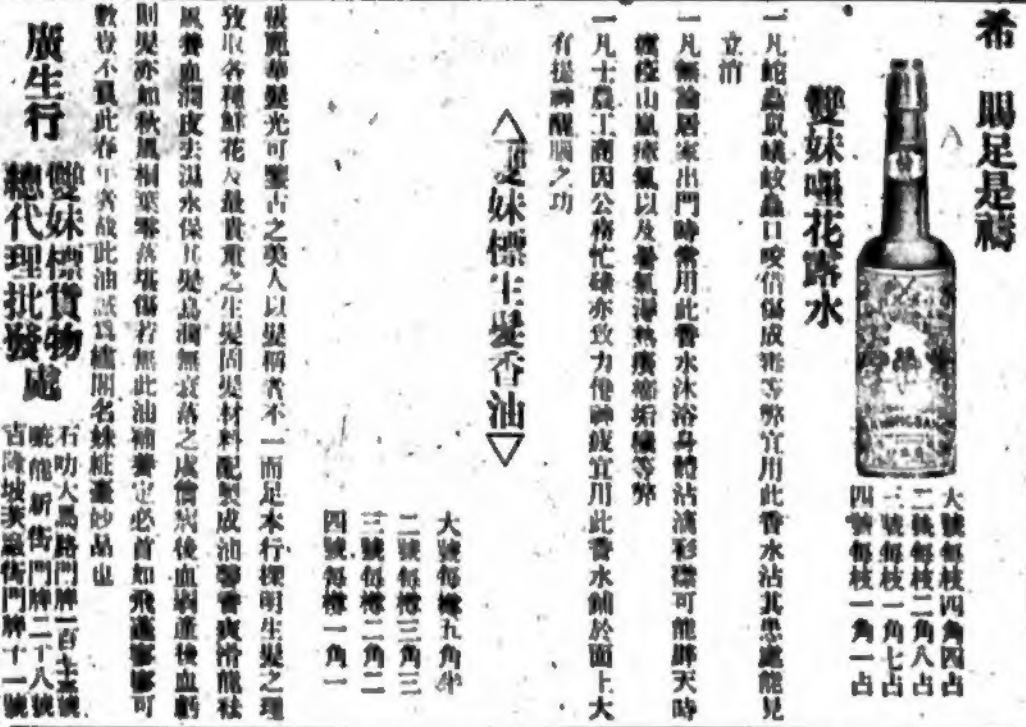 希 賜足是禱
雙妹嚜花露水
KWONG SANG
大號每枝四角四占
二號每枝二角八占
三號每枝一角七占
四號每枝一角一占
一凡蛇蟲鼠蟻蚊蟲口咬倘傷成毒等弊宜用此香水沾其患處能見
立消
一凡無論居家出門時常用此香水沐浴身體沾滴彩襟可能辟天時
瘟疫山嵐瘴氣以及暑氣濕熱痱瘡垢穢等弊
一凡士農工商因公務忙碌亦致力倦神疲宜用此香水餙於面上大
有提神醒腦之功
雙妹標生髮香油
大號每樽五角半
二號每樽三角三
三號每樽二角二
四號每樽一角一
髮光可鑒古之美人以髮稱者不一而足本行裸明生髮之理
致取各種鮮花及最貴重之生髮固髮材料配製成油馨香爽滑能祛
風養血潤皮去濕水保其髮烏潤無衰落之虞倘病後血弱產後血虧
則髮亦如秋風桐葉零落堪傷若無此油補養定必首如飛蓬寥寥可
數豈不負此春年者哉此油誠為爐閨名姝粧臺妙品也
廣生行
雙妹標貨物
總代理批發處
石叻大馬路門牌一百七號
新街門牌二十八號
吉隆坡茨廠街門牌十一號